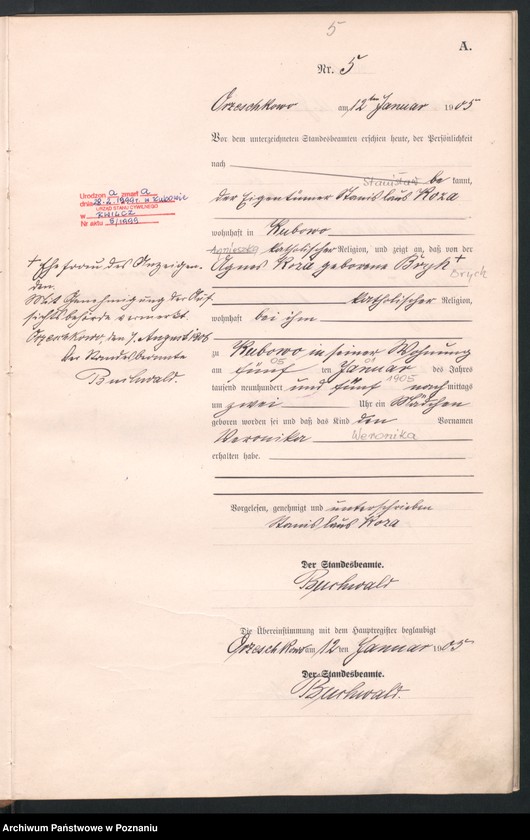 5
A.
Nr. 5
Orzeschkowo am 12ten Januar 1905
Vor dem unterzeichneten Standesbeamten erschien heute, der Persönlichkeit
nach
Stanisław
be kannt,
der Eigentümer Stanislaus Koza
wohnhaft in Kubowo
Agnieszka
katholischer Religion, und zeigt an, daß von der
Agnes Koza geborene Bryk +
Brych
katholischer Religion,
wohnhaft bei ihm
zu Kubowo in seiner Wohnung
05 01
am fünf ten Januar des Jahres
1905
tausend neunhundert und fünf nachmittags
um zwei Uhr ein Mädchen
geboren worden sei und daß das Kind den Vornamen
Veronika Weronika
erhalten habe.
Vorgelesen, genehmigt und unterschrieben
Stanislaus Koza
Der Standesbeamte.
Buchwald
Die Übereinstimmung mit dem Hauptregister beglaubigt
Orzeschkowo am 12 ten Januar 1905
Der Standesbeamte.
Buchwald.
Urodzon a zmarł a
dnia 28.2.1999 r. w
URZĄD STANU CYWILNEGO
w KWILCZ
Nr aktu 9/1999
+ Ehefrau des Anzeigen-
den.
Mit Genehmigung der Auf
sichtsbehörde vermerkt.
Orzeschkowo, den 7. August 1905
Der Standesbeamte
Buchwald.
Archiwum Państwowe w Poznaniu